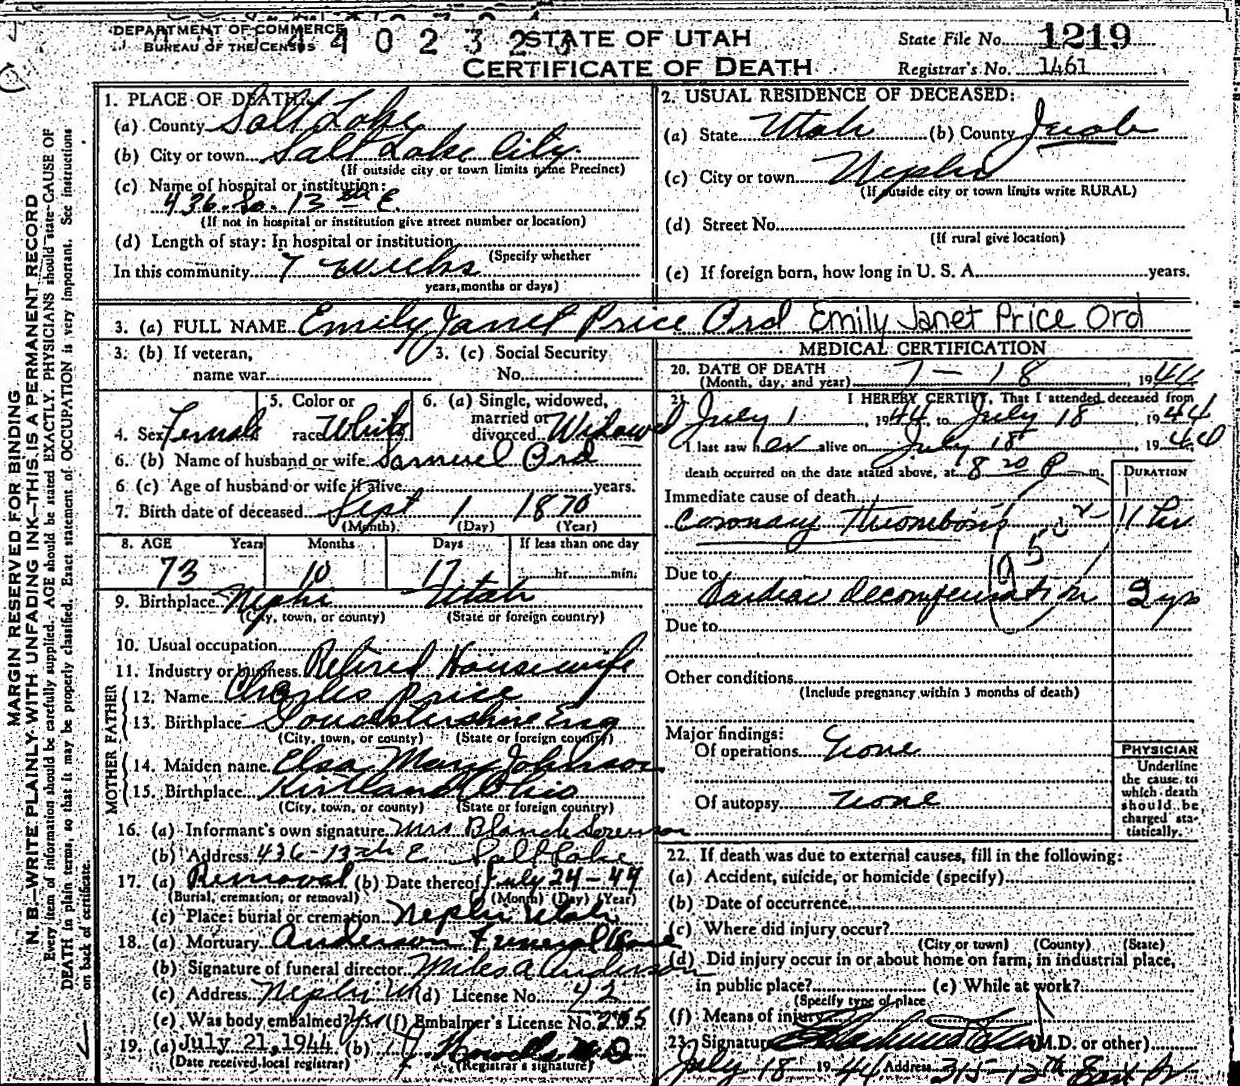 DEPARTMENT OF COMMERCE
BUREAU OF THE CENSUS
4 0 2 3 2
STATE OF UTAH
CERTIFICATE OF DEATH
State File No. 1219
Registrar's No. 1461
1. PLACE OF DEATH:
(a) County Salt Lake
(b) City or town Salt Lake City
(If outside city or town limits name Precinct)
(c) Name of hospital or institution:
436 So. 13th E.
(If not in hospital or institution give street number or location)
(d) Length of stay: In hospital or institution
(Specify whether
In this community 7 weeks
years, months or days)
2. USUAL RESIDENCE OF DECEASED:
(a) State Utah (b) County Juab
(c) City or town Nephi
(If outside city or town limits write RURAL)
(d) Street No.
(If rural give location)
(e) If foreign born, how long in U. S. A. years.
3. (a) FULL NAME Emily Janet Price Ord Emily Janet Price Ord
3. (b) If veteran,
name war
3. (c) Social Security
No.
4. Sex Female
5. Color or
race White
6. (a) Single, widowed,
married or
divorced Widowed
6. (b) Name of husband or wife Samuel Ord
6 (c) Age of husband or wife if alive years.
7. Birth date of deceased Sept 1 1870
(Month) (Day) (Year)
8. AGE Years Months Days If less than one day
73 10 17 hr. min.
9. Birthplace Nephi Utah
(City, town, or county) (State or foreign country)
10. Usual occupation
11. Industry or business Retired Housewife
FATHER
12. Name Charles Price
13. Birthplace Gloucestershire Eng
(City, town, or county) (State or foreign country)
MOTHER
14. Maiden name Elsa Mary Johnson
15. Birthplace Kirtland Ohio
(City, town, or county) (State or foreign country)
16. (a) Informant's own signature Mrs Blanch Sorenson
(b) Address 436-13th E Salt Lake
17. (a) Removal (b) Date thereof July 24-44
(Burial, cremation, or removal) (Month) (Day) (Year)
(c) Place: burial or cremation Nephi Utah
18. (a) Mortuary Anderson Funeral Home
(b) Signature of funeral director Miles A Anderson
(c) Address Nephi Ut (d) License No. 42
(e) Was body embalmed? Yes (f) Embalmer's License No. 205
19. (a) July 21, 1944 (b)
(Date received local registrar) (Registrar's signature)
MEDICAL CERTIFICATION
20. DATE OF DEATH
(Month, day, and year) 7-18, 1944
21. I HEREBY CERTIFY, That I attended deceased from
July 1, 1944, to July 18, 1944
I last saw her alive on July 18, 1944
death occurred on the date stated above, at 8 20 P m.
DURATION
Immediate cause of death
Coronary Thrombosis 11 hr
Due to
Cardiac decompensation 2 yrs
Due to
Other conditions
(Include pregnancy within 3 months of death)
Major findings:
Of operations None
Of autopsy None
PHYSICIAN
Underline
the cause to
which death
should be
charged sta-
tistically.
22. If death was due to external causes, fill in the following:
(a) Accident, suicide, or homicide (specify)
(b) Date of occurrence
(c) Where did injury occur?
(City or town) (County) (State)
(d) Did injury occur in or about home on farm, in industrial place,
in public place? (e) While at work?
(Specify type of place
(f) Means of injury
23. Signature (M.D. or other)
July 18 1944 Address
MARGIN RESERVED FOR BINDING
N. B.—WRITE PLAINLY WITH UNFADING INK—THIS IS A PERMANENT RECORD
Every item of information should be carefully supplied. AGE should be stated EXACTLY. PHYSICIANS should state CAUSE OF
DEATH in plain terms, so that it may be properly classified. Exact statement of OCCUPATION is very important. See instructions
on back of certificate.